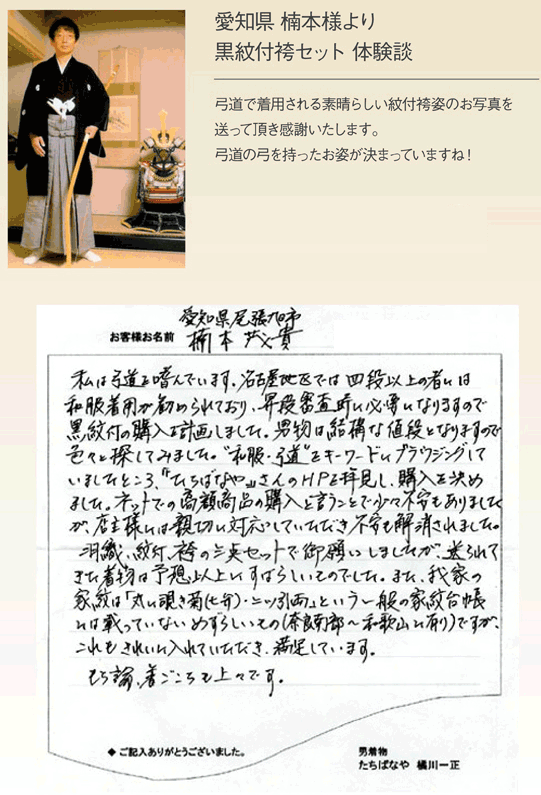 愛知県 楠本様より
黒紋付袴セット 体験談
弓道で着用される素晴らしい紋付袴姿のお写真を
送って頂き感謝いたします。
弓道の弓を持ったお姿が決まっていますね！
愛知県尾張旭市
お客様お名前 楠本 茂貴
私は弓道を嗜んでいます。名古屋地区では四段以上の者には
和服着用が勧められており、昇段審査時に必需になりますので
黒紋付の購入を計画しました。男物は結構な値段となりますので
色々と探してみました。"和服・弓道"をキーワードにブラウジングして
いましたところ、「たちばなや」さんのHPを拝見し、購入を決め
ました。ネットでの高額商品の購入と言うことで少々不安もありました
が、店主様には親切に対応していただき不安も解消されました。
羽織、紋付、袴の三点セットで御願いしましたが、送られて
きた着物は予想以上にすばらしいものでした。また、我家の
家紋は「丸に覗き菊(七弁)・二ッ引両」という一般の家紋台帳
には載っていないめずらしいもの(奈良南部〜和歌山に有り)ですが、
これもきれいに入れていただき、満足しています。
もち論、着ごこちも上々です。
◆ ご記入ありがとうございました。
男着物
たちばなや 橘川一正